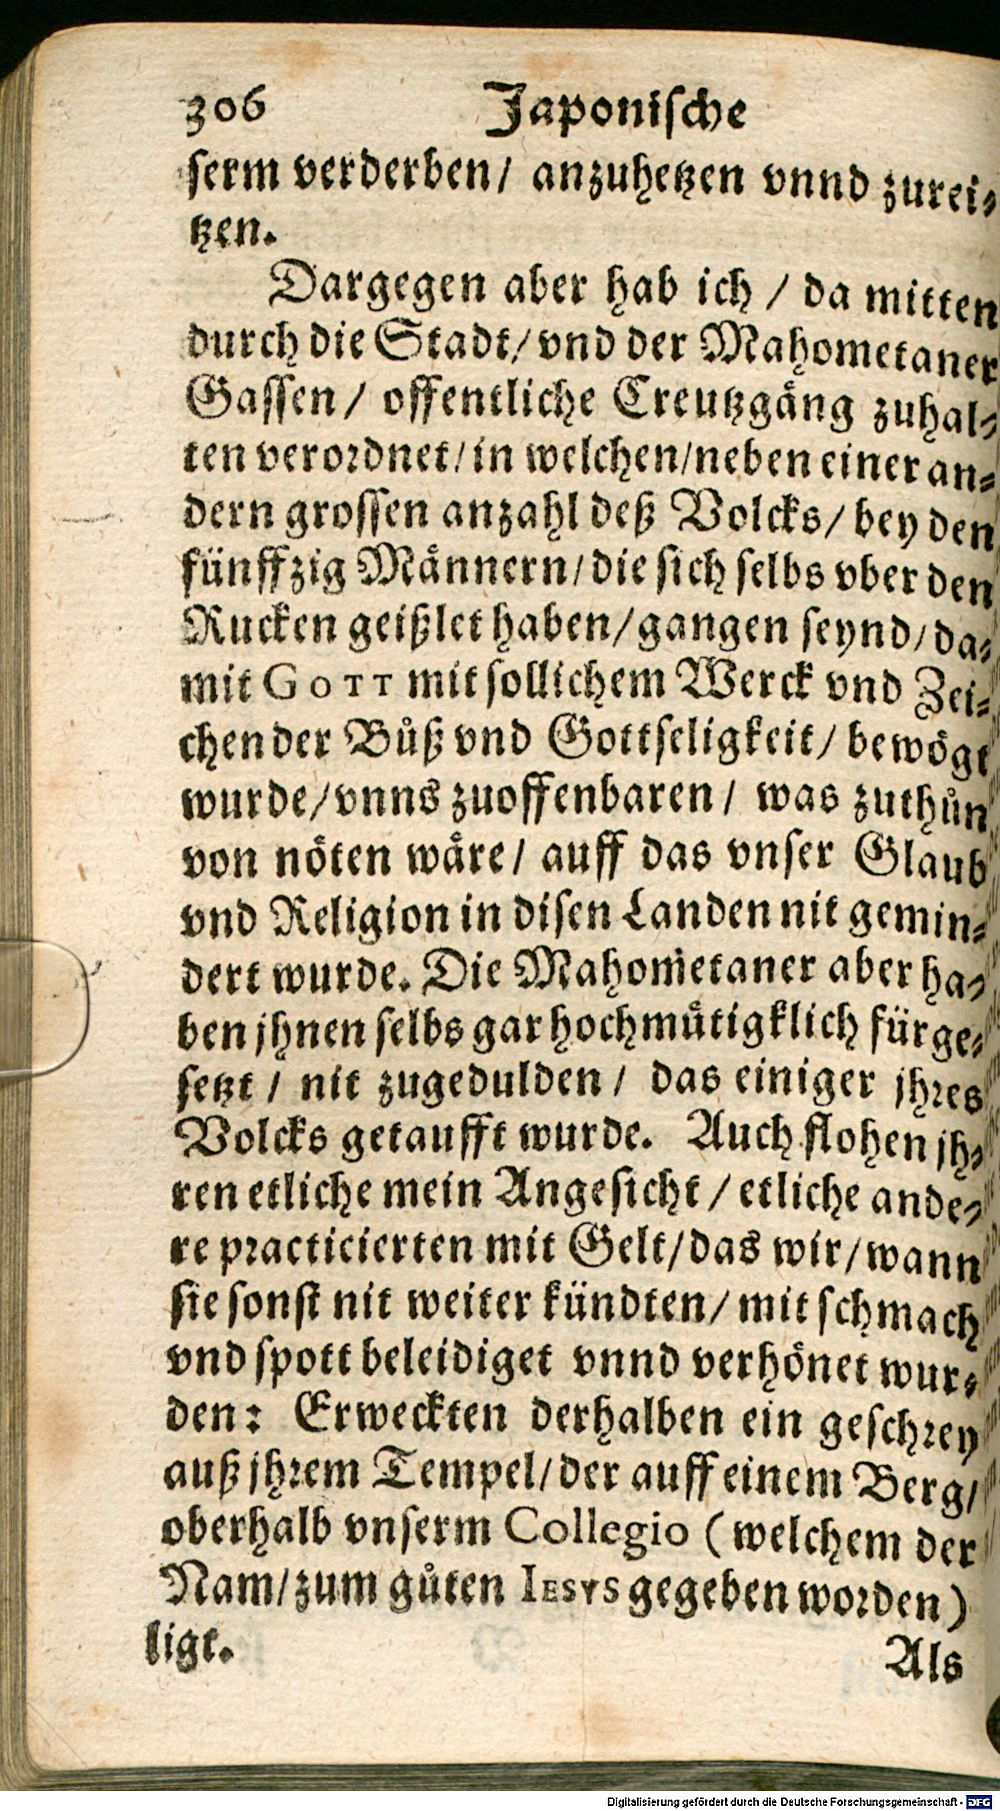 306 Japonische
serm verderben/ anzuhetzen vnnd zurei⸗
tzen.
Dargegen aber hab ich / da mitten
durch die Stadt/ vnd der Mahometaner
Gassen/ offentliche Creutzgäng zuhal⸗
ten verordnet/ in welchen/ neben einer an⸗
dern grossen anzahl deß Volcks/ bey den
fünffzig Männern/ die sich selbs vber den
Rucken geißlet haben/ gangen seynd/ da⸗
mit GOTT mit sollichem Werck vnd Zei⸗
chen der Bůß vnd Gottseligkeit/ bewögt
wurde/ vnns zuoffenbaren/ was zuthůn
von nöten wäre/ auff das vnser Glaub
vnd Religion in disen Landen nit gemin⸗
dert wurde. Die Mahometaner aber ha⸗
ben jhnen selbs gar hochmütigklich fürge⸗
setzt / nit zugedulden / das einiger jhres
Volcks getaufft wurde. Auch flohen jh⸗
ren etliche mein Angesicht / etliche ande⸗
re practicierten mit Gelt/ das wir/ wann
sie sonst nit weiter kündten/ mit schmach
vnd spott beleidiget vnnd verhönet wur⸗
den: Erweckten derhalben ein geschrey
auß jhrem Tempel/ der auff einem Berg/
oberhalb vnserm Collegio ( welchem der
Nam/ zum gůten IESVS gegeben worden )
ligt.
Als
Digitalisierung gefördert durch die Deutsche Forschungsgemeinschaft - DFG